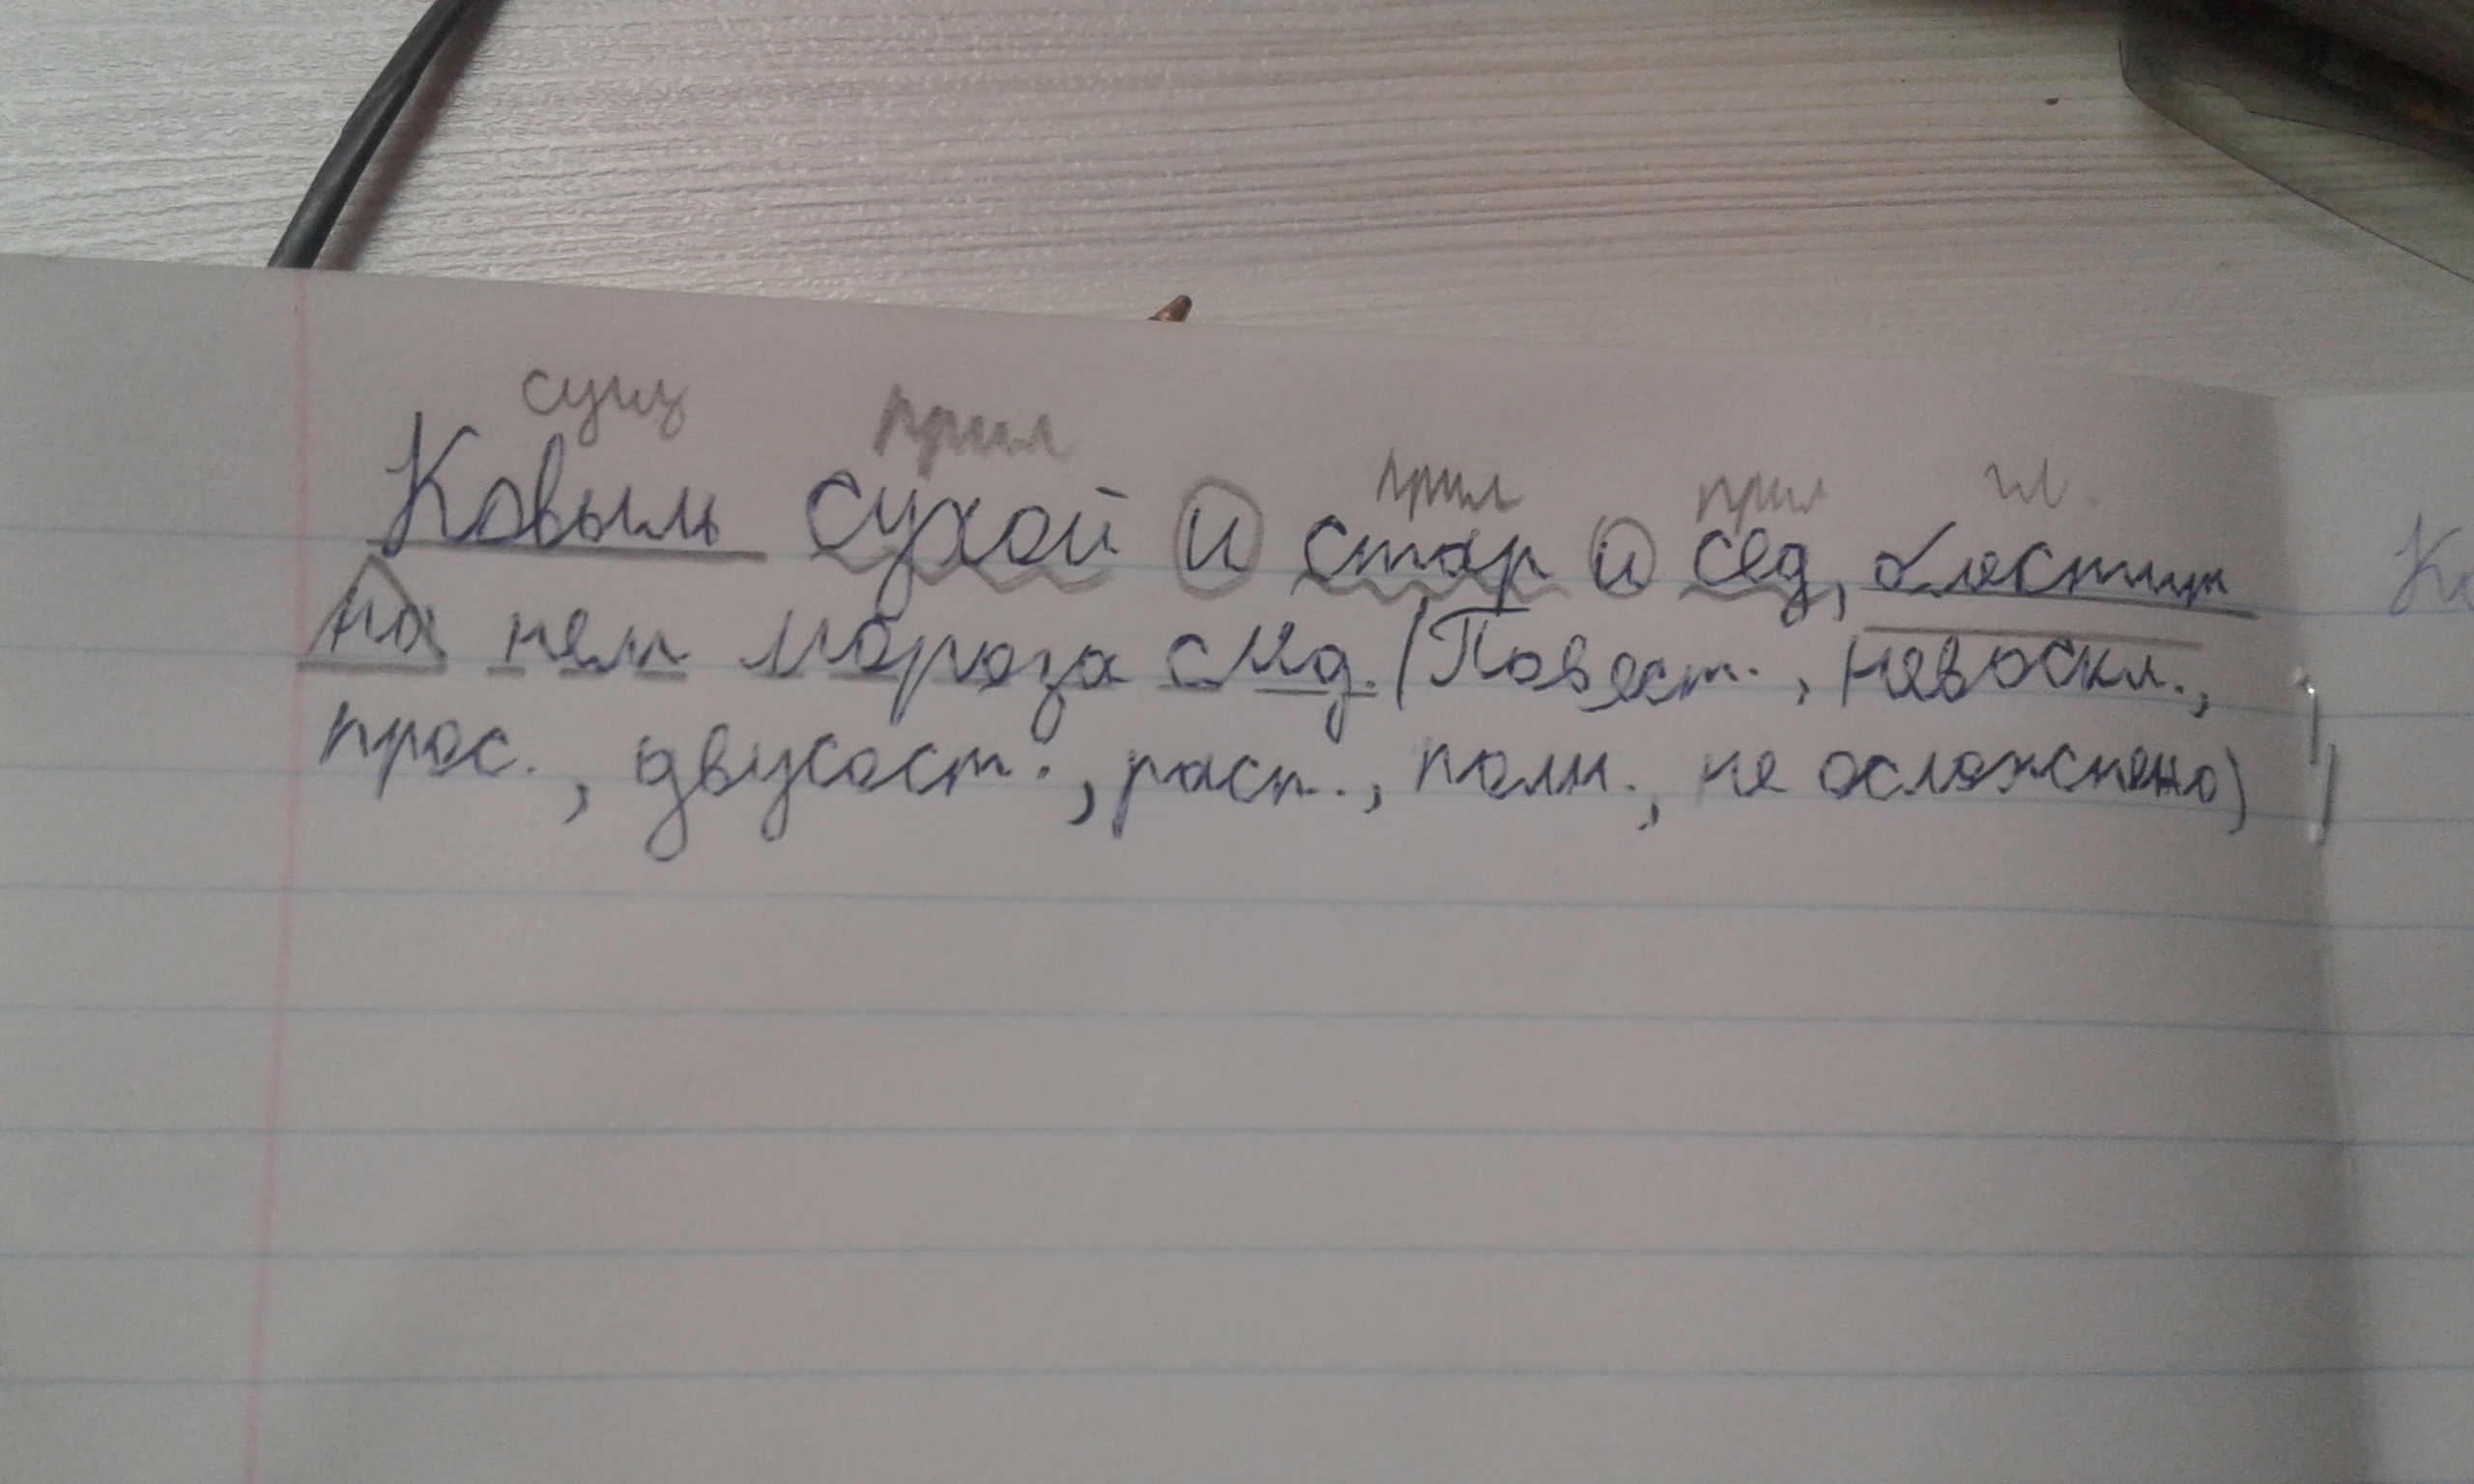 сущ прил прил прил гл.
Ковыль сухой и стар и сед, блестит
на нём мороза след. (Повест., невоскл.,
прос., двусост., расп., полн., не осложнено)